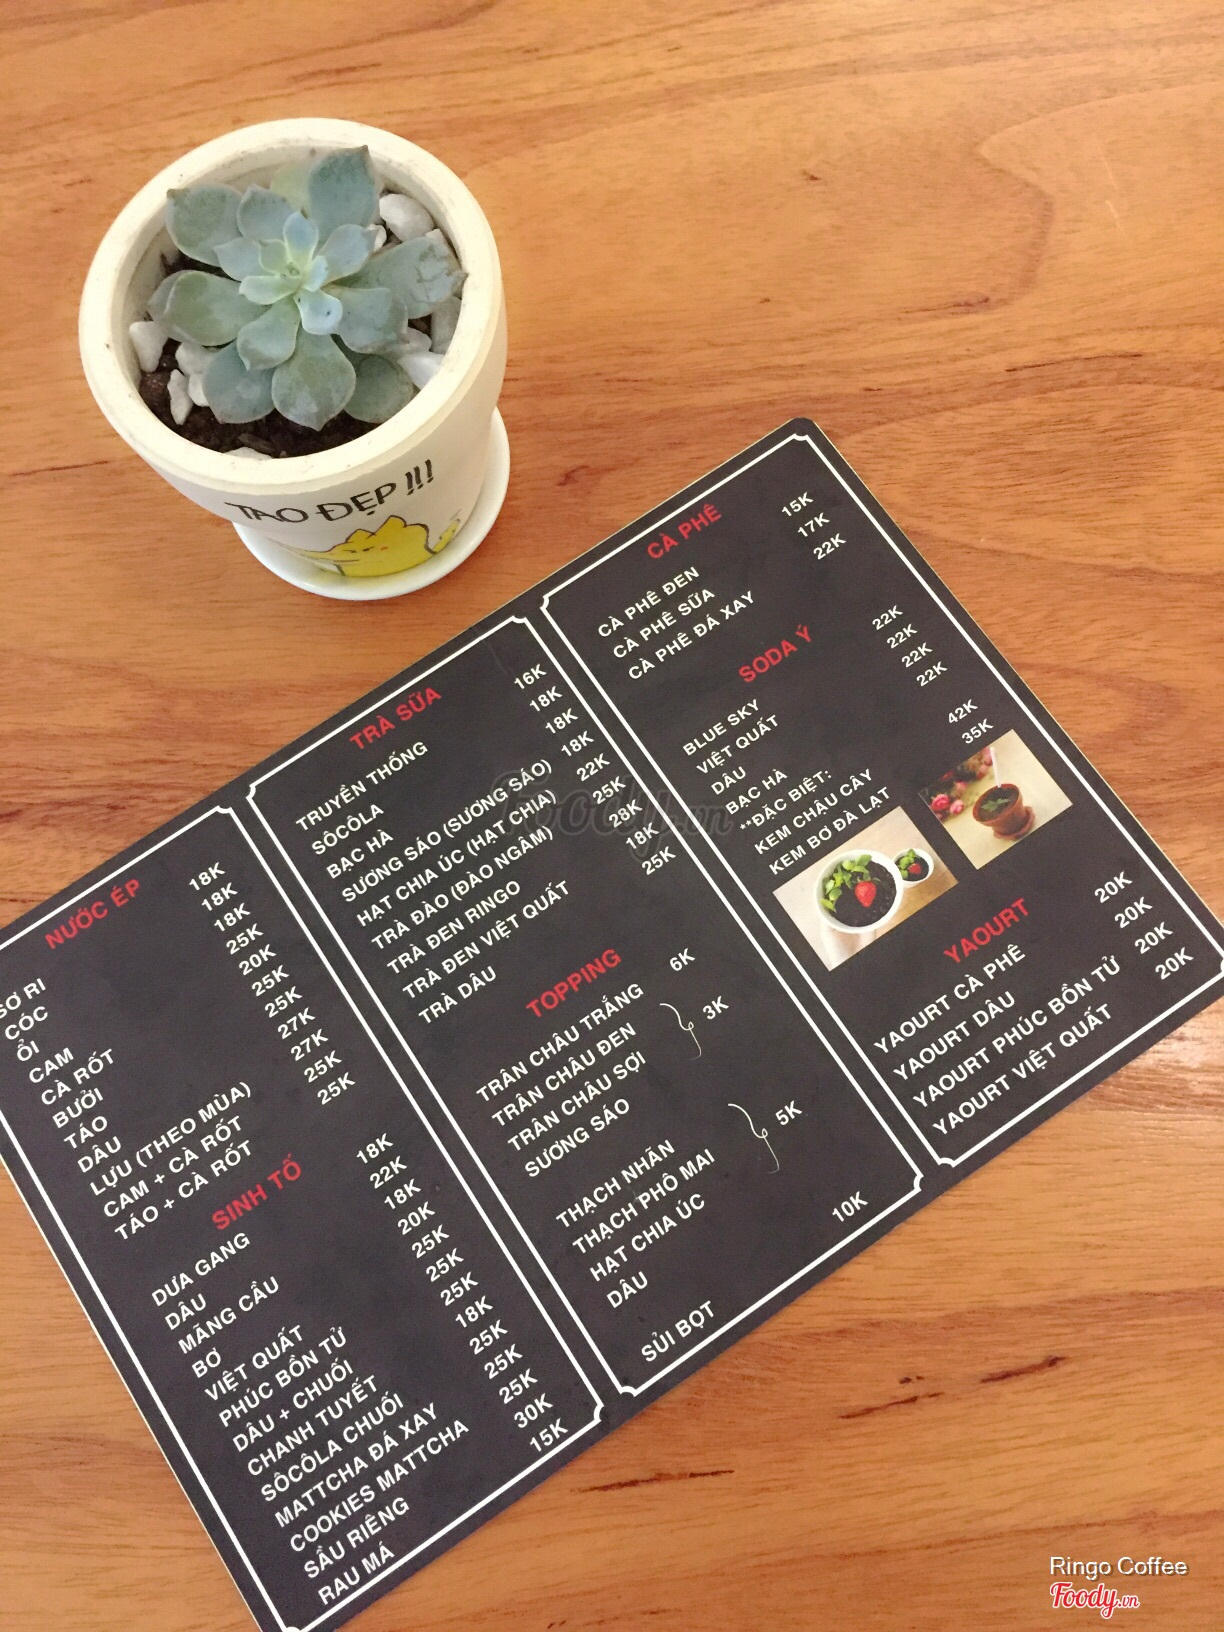 TAO ĐẸP !!!
NƯỚC ÉP
SƠ RI 18K
CÓC 18K
ỔI 18K
CAM 25K
CÀ RỐT 20K
BƯỞI 25K
TÁO 25K
DÂU 27K
LỰU (THEO MÙA) 27K
CAM + CÀ RỐT 25K
TÁO + CÀ RỐT 25K
SINH TỐ
DƯA GANG 18K
DÂU 22K
MÃNG CẦU 18K
BƠ 20K
VIỆT QUẤT 25K
PHÚC BỒN TỬ 25K
DÂU + CHUỐI 25K
CHANH TUYẾT 18K
SÔCÔLA CHUỐI 25K
MATTCHA ĐÁ XAY 25K
COOKIES MATTCHA 25K
SẦU RIÊNG 30K
RAU MÁ 15K
TRÀ SỮA
TRUYỀN THỐNG 16K
SÔCÔLA 18K
BẠC HÀ 18K
SƯƠNG SÁO (SƯƠNG SÁO) 18K
HẠT CHIA ÚC (HẠT CHIA) 22K
TRÀ ĐÀO (ĐÀO NGÂM) 25K
TRÀ ĐEN RINGO 28K
TRÀ ĐEN VIỆT QUẤT 18K
TRÀ DÂU 25K
TOPPING
TRÂN CHÂU TRẮNG 6K
TRÂN CHÂU ĐEN
TRÂN CHÂU SỢI 3K
SƯƠNG SÁO
THẠCH NHÃN
THẠCH PHÔ MAI 5K
HẠT CHIA ÚC
DÂU
SỦI BỌT 10K
CÀ PHÊ
CÀ PHÊ ĐEN 15K
CÀ PHÊ SỮA 17K
CÀ PHÊ ĐÁ XAY 22K
SODA Ý
BLUE SKY 22K
VIỆT QUẤT 22K
DÂU 22K
BẠC HÀ 22K
**ĐẶC BIỆT:
KEM CHẬU CÂY 42K
KEM BƠ ĐÀ LẠT 35K
YAOURT
YAOURT CÀ PHÊ 20K
YAOURT DÂU 20K
YAOURT PHÚC BỒN TỬ 20K
YAOURT VIỆT QUẤT 20K
Foody.vn
Ringo Coffee
Foody.vn